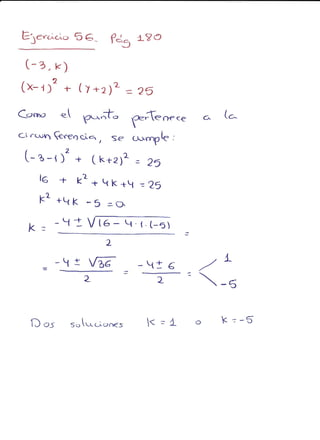 Ejercicio 56. Pág 180
(-3, k)
(x-1)² + (y+2)² = 25
Como el punto pertenece a la
circunferencia, se cumple:
(-3-1)² + (k+2)² = 25
16 + k² + 4k + 4 = 25
k² + 4k - 5 = 0
k = (-4 ± √(16 - 4·1·(-5))) / 2 =
= (-4 ± √36) / 2 = (-4 ± 6) / 2 = < 1
-5
Dos soluciones k = 1 o k = -5